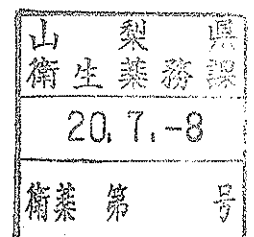 山梨県
衛生薬務課
20.7.-8
衛薬第 号